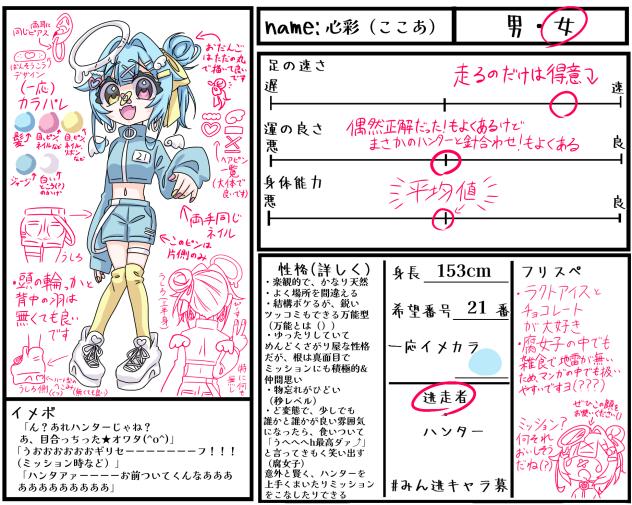 name: 心彩（ここあ）
男・女
両耳に
同じピアス
ばんそうこう
デザイン
(一応)
カラパレ
髪
ジャージ
おだんご
はただの丸
で描いて良い
です
ヘアピン
一覧
(大体で
良いです)
両手同じ
ネイル
このピンは
片側のみ
21
うしろ
・頭の輪っかと
背中の羽は
無くても良い
です
うしろ(上半身)
足の速さ
走るのだけは得意
遅
速
運の良さ
偶然正解だった!もよくあるけど
まさかのハンターと鉢合わせ!もよくある
悪
良
身体能力
平均値
悪
良
イメボ
「ん？あれハンターじゃね？
あ、目合っちった★オワタ(^o^)」
「うおおおおおおギリセーーーーーーーフ！！！
(ミッション時など）」
「ハンタアァーーーーお前ついてくんなあああ
あああああああああ」
性格(詳しく)
・楽観的で、かなり天然
・よく場所を間違える
・結構ボケるが、鋭い
ツッコミもできる万能型
（万能とは（））
・ゆったりしていて
めんどくさがり屋な性格
だが、根は真面目で
ミッションにも積極的&
仲間思い
・物忘れがひどい
（秒レベル）
・ど変態で、少しでも
誰かと誰かが良い雰囲気
になったら、食いついて
「うへへへh最高ダァ⤴」
と言ってきもく笑い出す
（腐女子）
意外と賢く、ハンターを
上手くまいたりミッション
をこなしたりできる
身長 153cm
希望番号 21 番
一応イメカラ
逃走者
ハンター
#みん逃キャラ募
フリスペ
・ラクトアイスと
チョコレート
が大好き
・腐女子の中でも
雑食で地雷が無い
ためマンガの中でも扱い
やすいですヨ(???)
ぜひこの顔を
お使いください!!
ミッション?
何それ
おいしそう
だね(?)